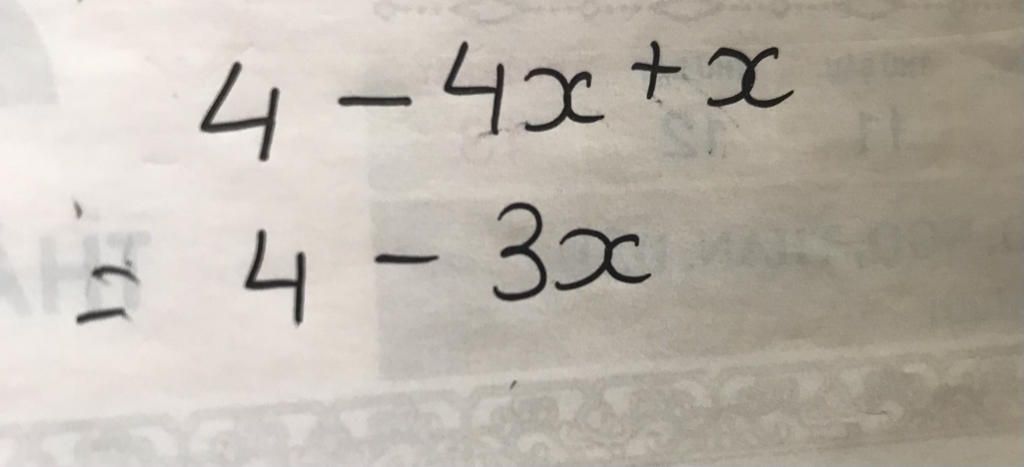 4 - 4x + x
= 4 - 3x